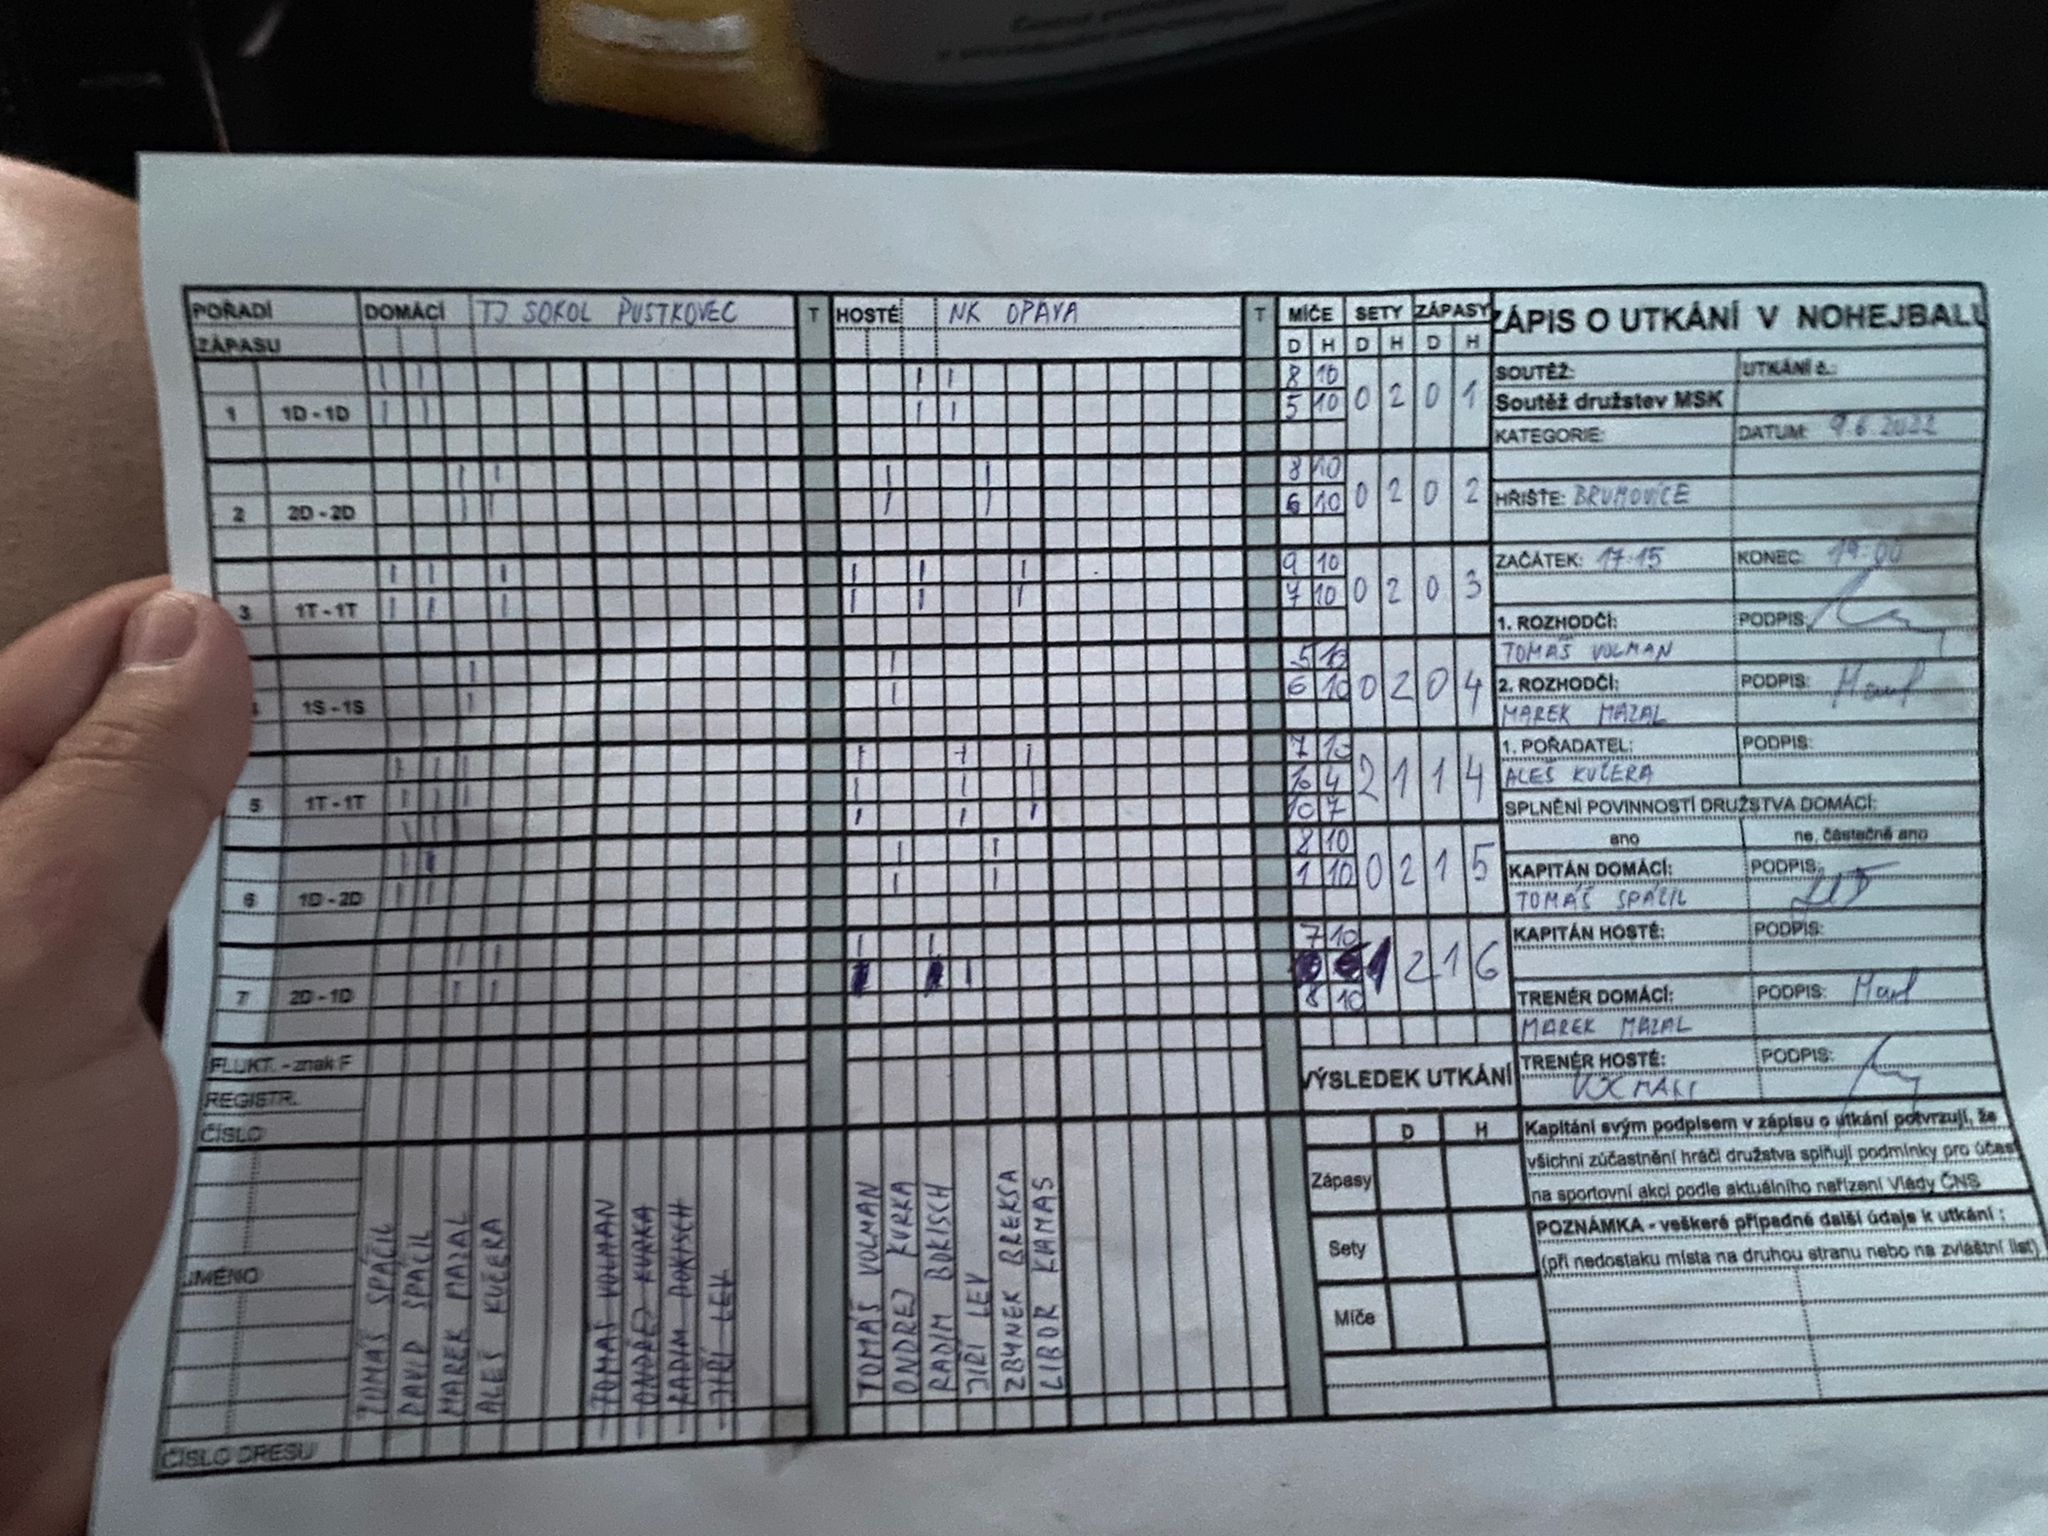 POŘADÍ DOMÁCÍ TJ SOKOL PUSTKOVEC T HOSTÉ NK OPAVA T MÍČE SETY ZÁPASY
ZÁPASU D H D H D H
ZÁPIS O UTKÁNÍ V NOHEJBALU
8 10
1 1D - 1D 5 10 0 2 0 1
8 10
2 2D - 2D 6 10 0 2 0 2
9 10
3 1T - 1T 7 10 0 2 0 3
5 10
1S - 1S 6 10 0 2 0 4
7 10
5 1T - 1T 10 4 2 1 1 4
10 7
8 10
6 1D - 2D 1 10 0 2 1 5
7 10
7 2D - 1D 1 2 1 6
8 10
FLUKT. - znak F
REGISTR.
ČÍSLO
JMÉNO
TOMÁŠ SPÁČIL
DAVID SPÁČIL
MAREK MAZAL
ALEŠ KUČERA
TOMÁŠ VOLMAN
ONDŘEJ KURKA
RADIM BOKISCH
JIŘÍ LEV
TOMÁŠ VOLMAN
ONDŘEJ KURKA
RADIM BOKISCH
JIŘÍ LEV
ZBYNEK BREKSA
LIBOR KAMAS
ČÍSLO DRESU
VÝSLEDEK UTKÁNÍ
D H
Zápasy
Sety
Míče
SOUTĚŽ: UTKÁNÍ č.:
Soutěž družstev MSK
KATEGORIE: DATUM: 9.6.2022
HŘIŠTĚ: BRUMOVICE
ZAČÁTEK: 17:15 KONEC: 19:00
1. ROZHODČÍ: PODPIS:
TOMÁŠ VOLMAN
2. ROZHODČÍ: PODPIS:
MAREK MAZAL
1. POŘADATEL: PODPIS:
ALEŠ KUČERA
SPLNĚNÍ POVINNOSTÍ DRUŽSTVA DOMÁCÍ:
ano ne, částečně ano
KAPITÁN DOMÁCÍ: PODPIS:
TOMÁŠ SPÁČIL
KAPITÁN HOSTÉ: PODPIS:
TRENÉR DOMÁCÍ: PODPIS:
MAREK MAZAL
TRENÉR HOSTÉ: PODPIS:
Kapitáni svým podpisem v zápisu o utkání potvrzují, že
všichni zúčastnění hráči družstva splňují podmínky pro účast
na sportovní akci podle aktuálního nařízení Vlády ČNS
POZNÁMKA - veškeré případné další údaje k utkání :
(při nedostaku místa na druhou stranu nebo na zvláštní list)